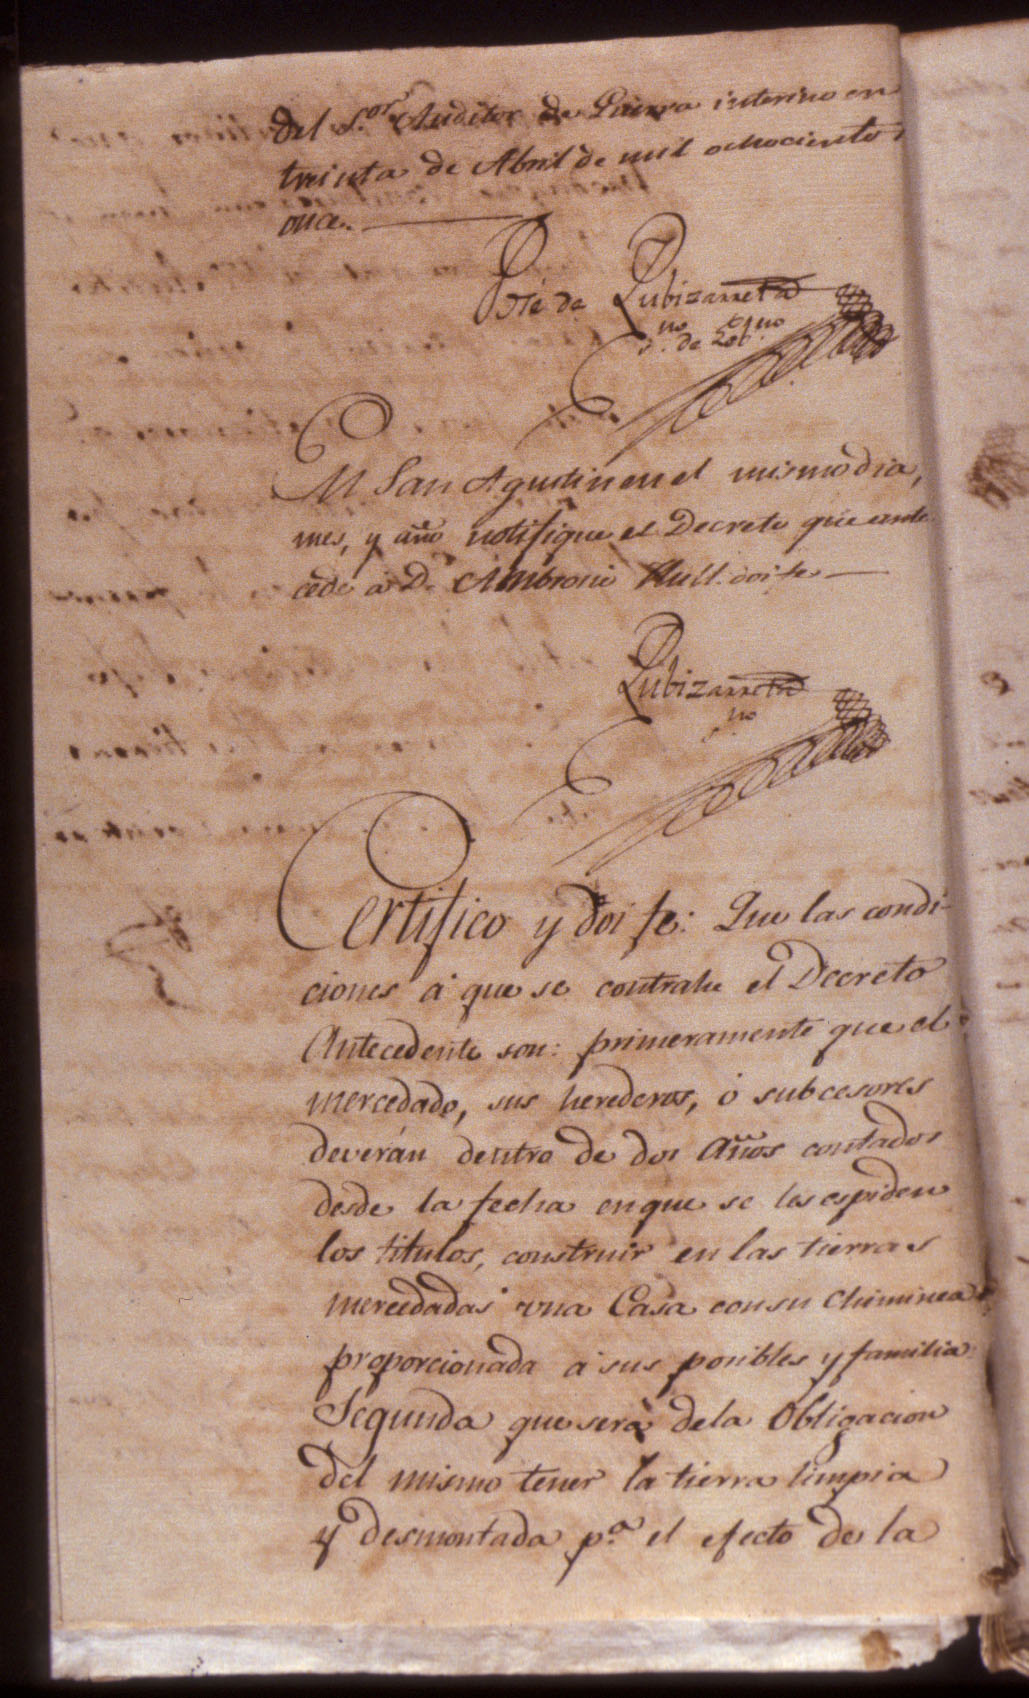 del S.or Auditor de Guerra interino en
treinta de Abril de mil ochociento
once.
José de Zubizarreta
no
En San Agustin en el mismo dia,
mes, y año notifique el Decreto que ante
cede a D. Ambrosio Hull. doi fe
Zubizarreta
no
Certifico y doi fe: Que las condi-
ciones á que se contrahe el Decreto
Antecedente son: primeramente que el
mercedado, sus herederos, ó subcesores
deverán dentro de dos años contados
desde la fecha en que se les espiden
los titulos, construir en las tierras
mercedadas una Casa con su Chiminea
proporcionada á sus posibles y familia:
Segunda que será de la Obligacion
del mismo tener la tierra limpia
y desmontada p.a el efecto de la